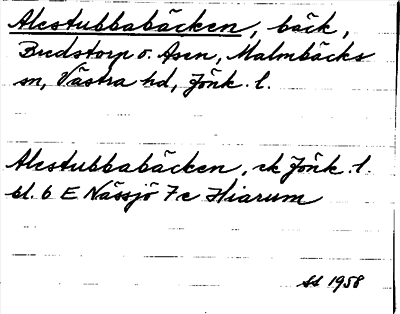 Alestubbabäcken, bäck,
Bredstorp o. Åsen, Malmbäcks
sn, Västra hd, Jönk. l.
Alestubbabäcken, ek Jönk. l.
bl. 6 E Nässjö 7 c Hiarum
1958